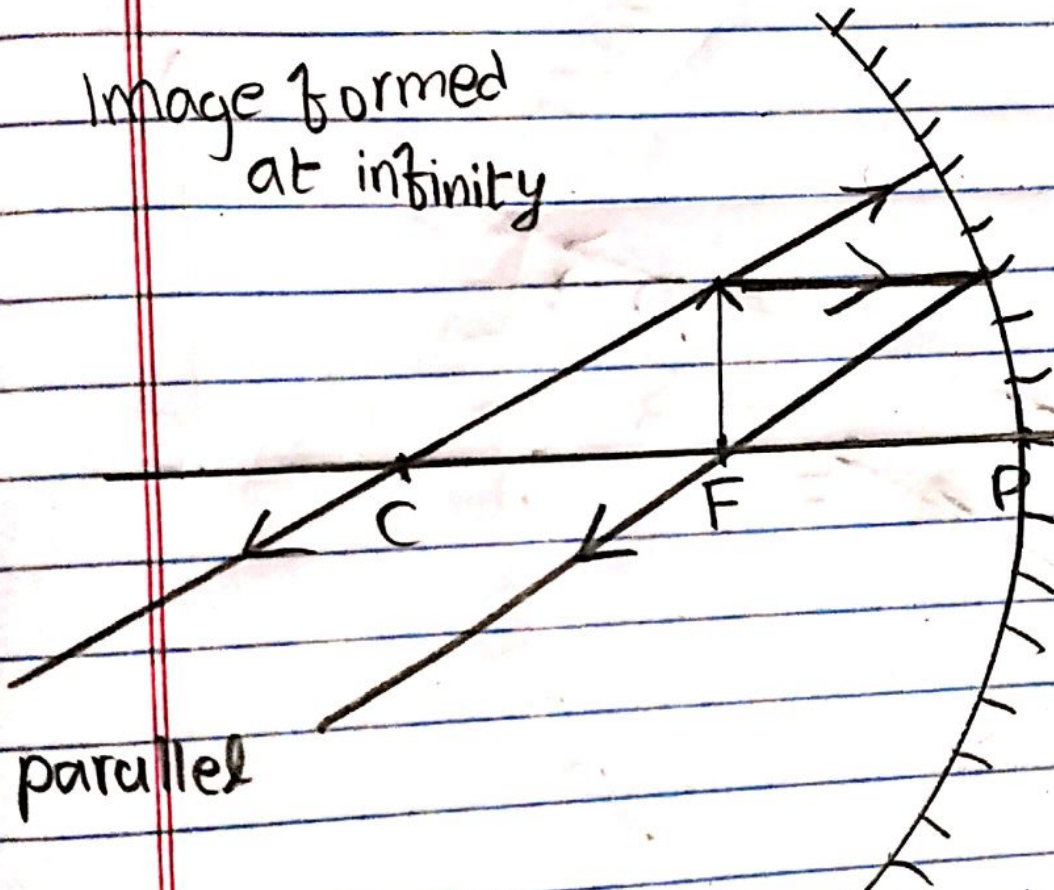 Image formed
at infinity
C
F
P
parallel